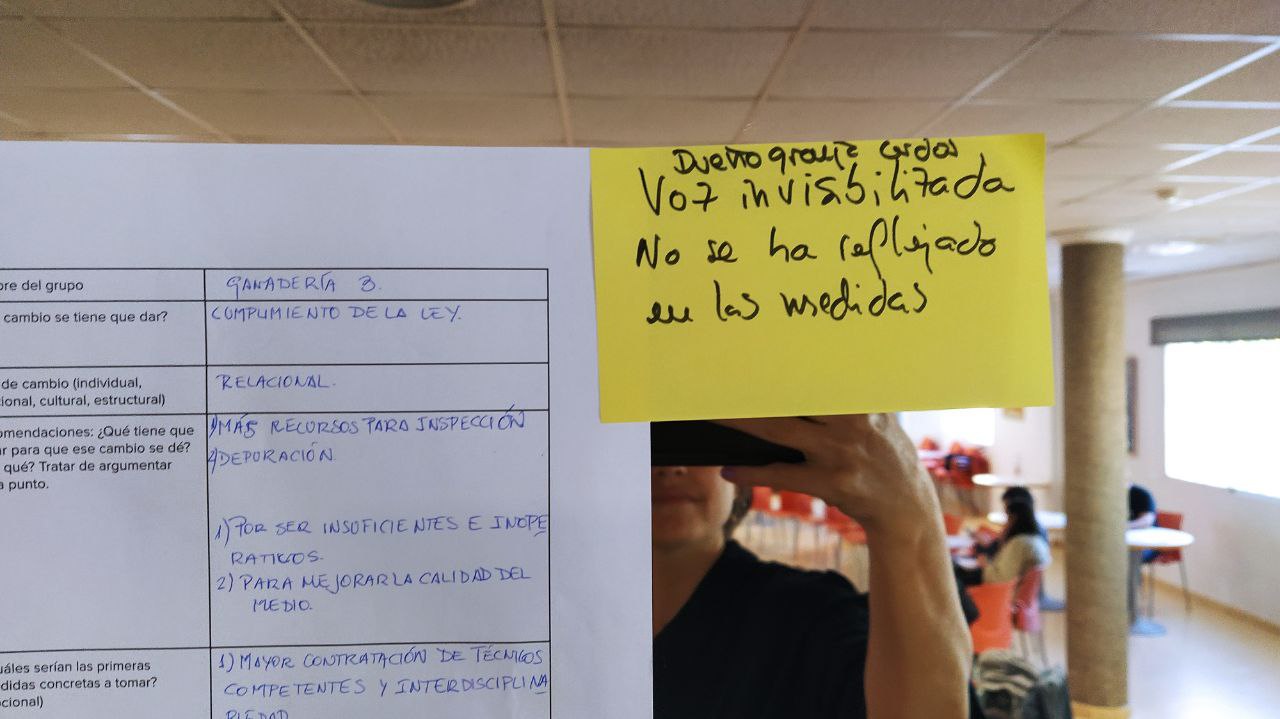 Dueño granja cerdos
Voz invisibilizada
No se ha reflejado
en las medidas
bre del grupo
GANADERÍA 3.
cambio se tiene que dar?
CUMPLIMIENTO DE LA LEY.
de cambio (individual,
ional, cultural, estructural)
RELACIONAL.
omendaciones: ¿Qué tiene que
ar para que ese cambio se dé?
qué? Tratar de argumentar
a punto.
1) MÁS RECURSOS PARA INSPECCIÓN
2) DEPURACIÓN
1) POR SER INSUFICIENTES E INOPE
RATIVOS.
2) PARA MEJORAR LA CALIDAD DEL
MEDIO.
uáles serían las primeras
didas concretas a tomar?
cional)
1) MAYOR CONTRATACIÓN DE TÉCNICOS
COMPETENTES Y INTERDISCIPLINA
RIEDAD